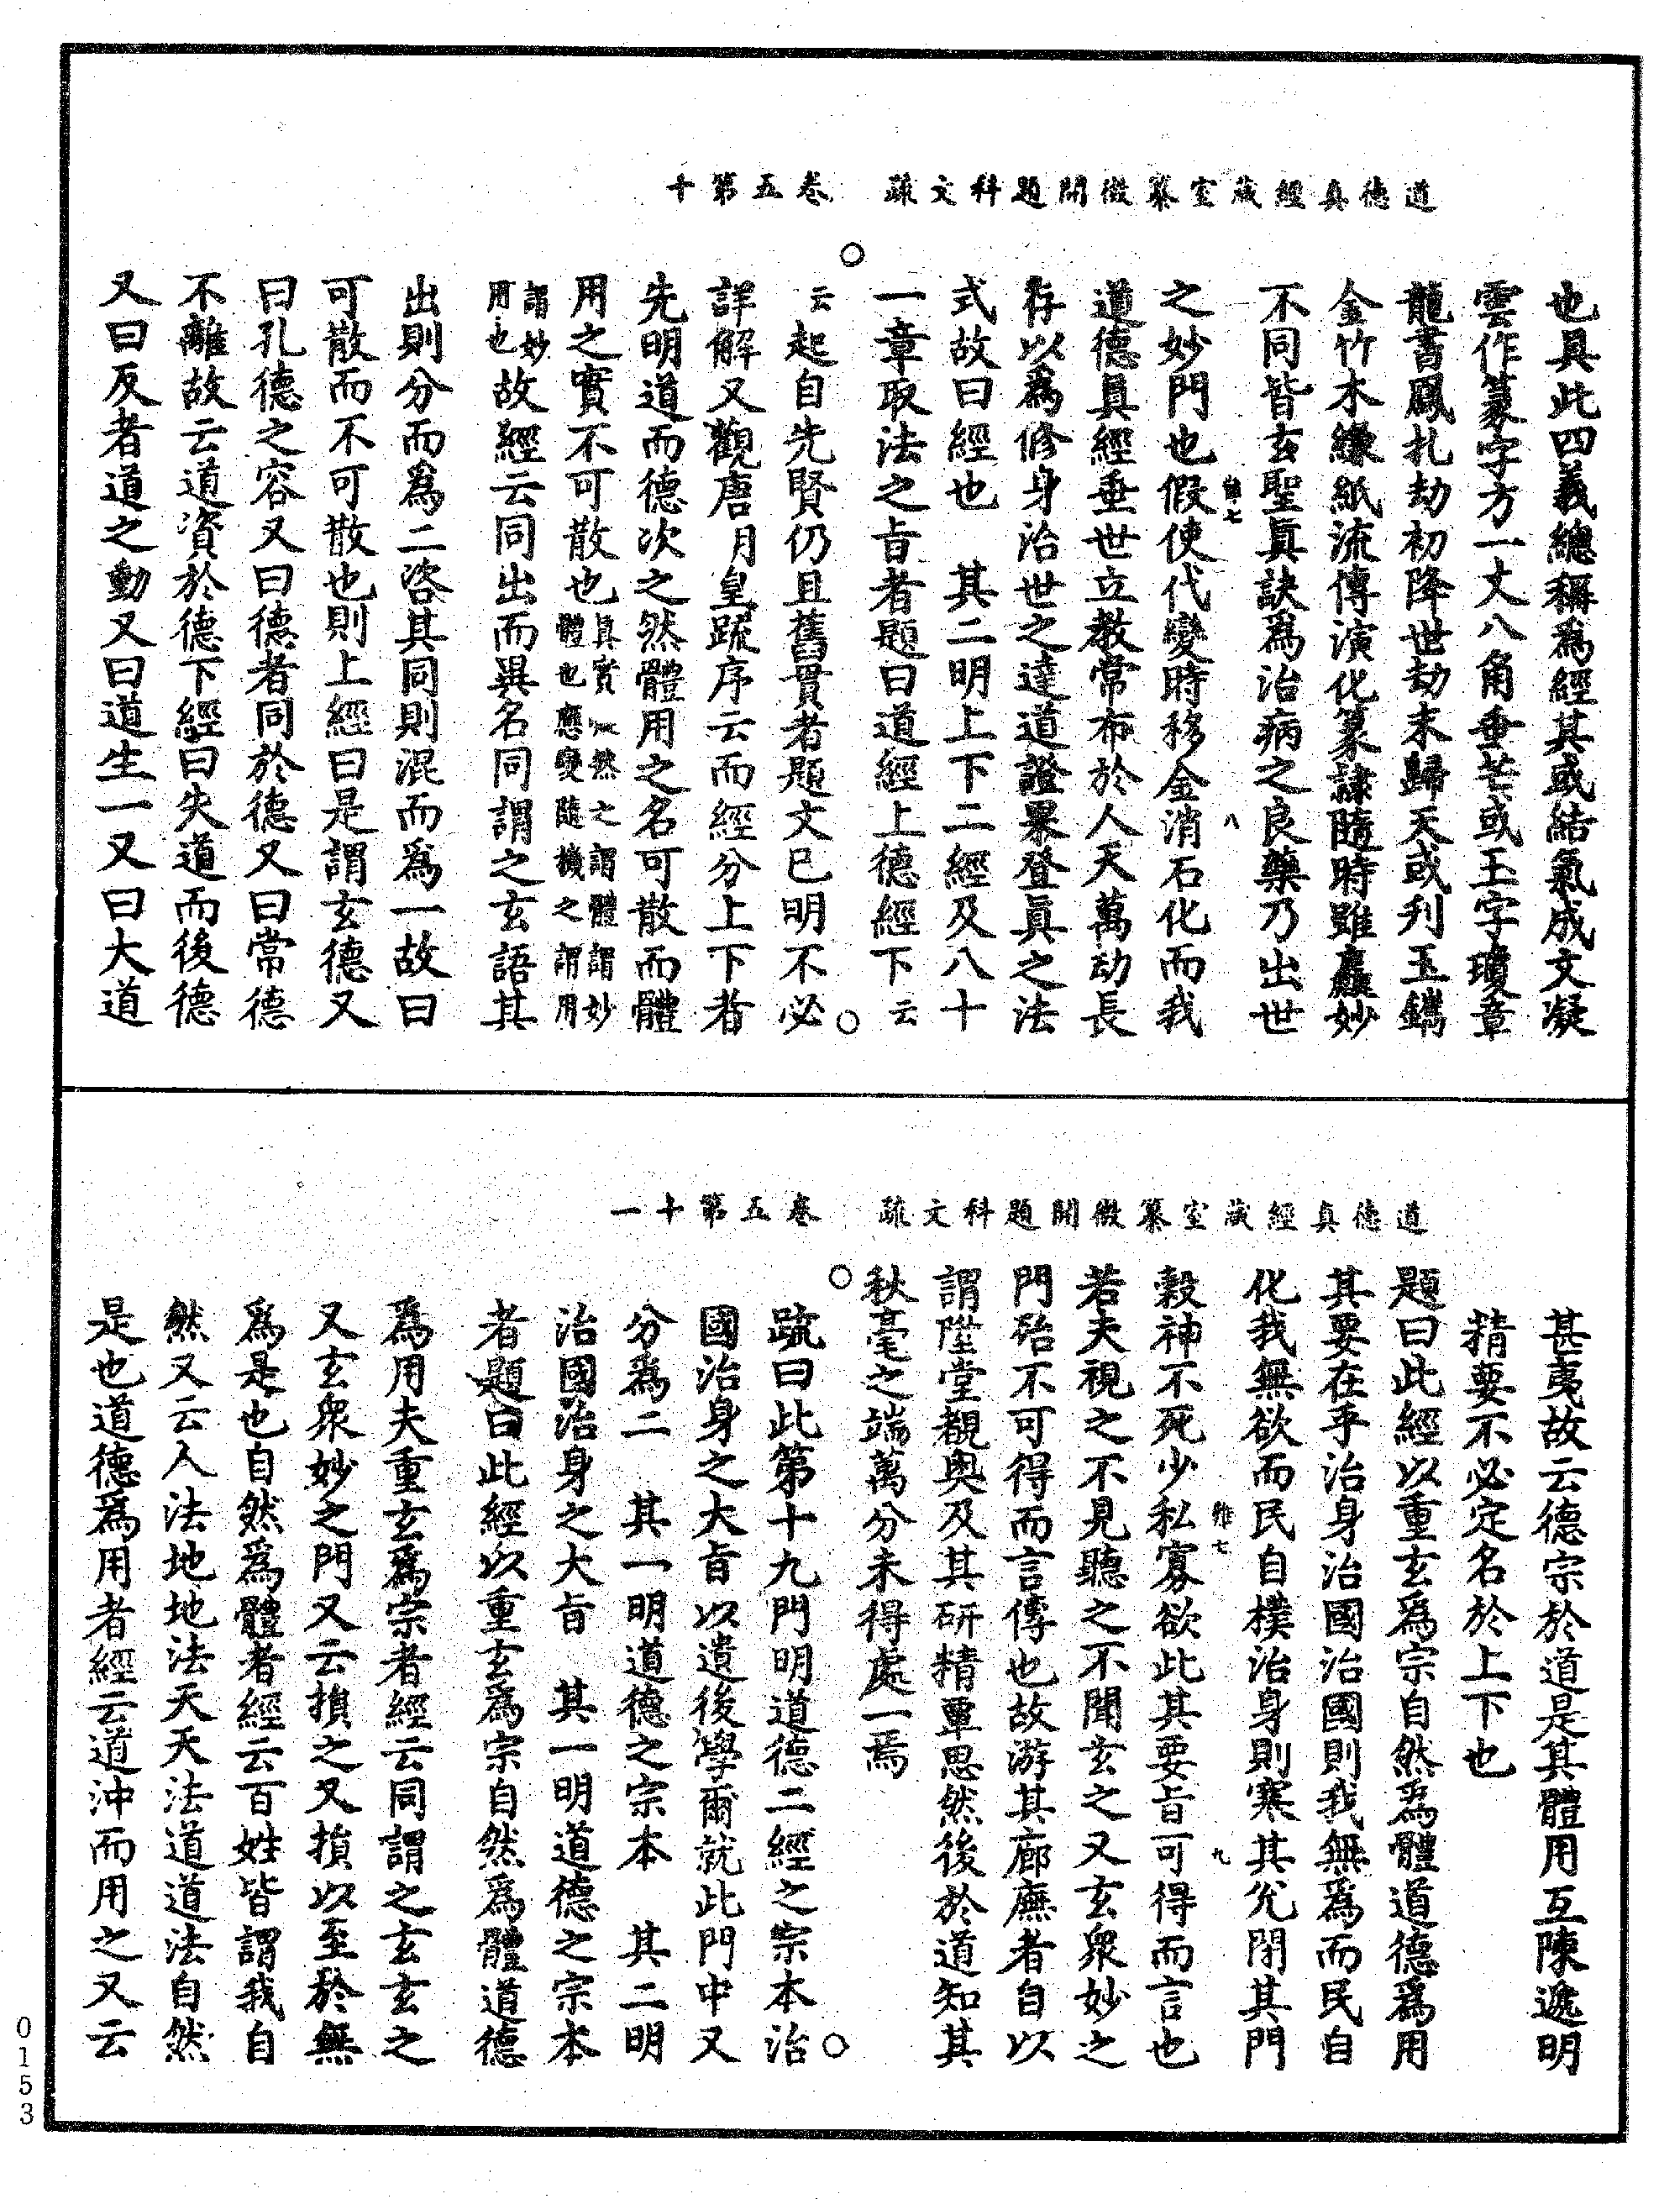 道德真經藏室纂微開題科文疏　卷五第十
也具此四義總稱爲經其或結氣成文凝
雲作篆字方一丈八角垂芒或玉字瓊章
龍書鳳扎劫初降世劫末歸天或刋玉鐫
金竹木縑紙流傳演化篆隸隨時雖麤妙
不同皆玄聖眞訣爲治病之良藥乃出世
之妙門也假使代變時移金消石化而我
道德眞經垂世立教常布於人天萬劫長
存以爲修身治世之達道證果登眞之法
式故曰經也　其二明上下二經及八十
一章取法之旨者題曰道經上德經下云
云起自先賢仍且舊貫者題文已明不必
詳解又觀唐月皇䟽序云而經分上下者
先明道而德次之然體用之名可散而體
用之實不可散也眞實凝然之謂體謂妙體也應變隨機之謂用
謂妙用也故經云同出而異名同謂之玄語其
出則分而爲二咨其同則混而爲一故曰
可散而不可散也則上經曰是謂玄德又
曰孔德之容又曰德者同於德又曰常德
不離故云道資於德下經曰失道而後德
又曰反者道之動又曰道生一又曰大道
道德真經藏室纂微開題科文疏　卷五第十一
甚夷故云德宗於道是其體用互陳遞明
精要不必定名於上下也
題曰此經以重玄爲宗自然爲體道德爲用
其要在乎治身治國治國則我無爲而民自
化我無欲而民自樸治身則塞其兌閉其門
穀神不死少私寡欲此其要旨可得而言也
若夫視之不見聽之不聞玄之又玄衆妙之
門殆不可得而言傳也故游其廊廡者自以
謂陞堂覩奥及其研精覃思然後於道知其
秋毫之端萬分未得處一焉
䟽曰此第十九門明道德二經之宗本治
國治身之大旨以遺後學爾就此門中又
分爲二　其一明道德之宗本　其二明
治國治身之大旨　其一明道德之宗本
者題曰此經以重玄爲宗自然爲體道德
爲用夫重玄爲宗者經云同謂之玄玄之
又玄衆妙之門又云損之又損以至於無
爲是也自然爲體者經云百姓皆謂我自
然又云人法地地法天天法道道法自然
是也道德爲用者經云道沖而用之又云
0153